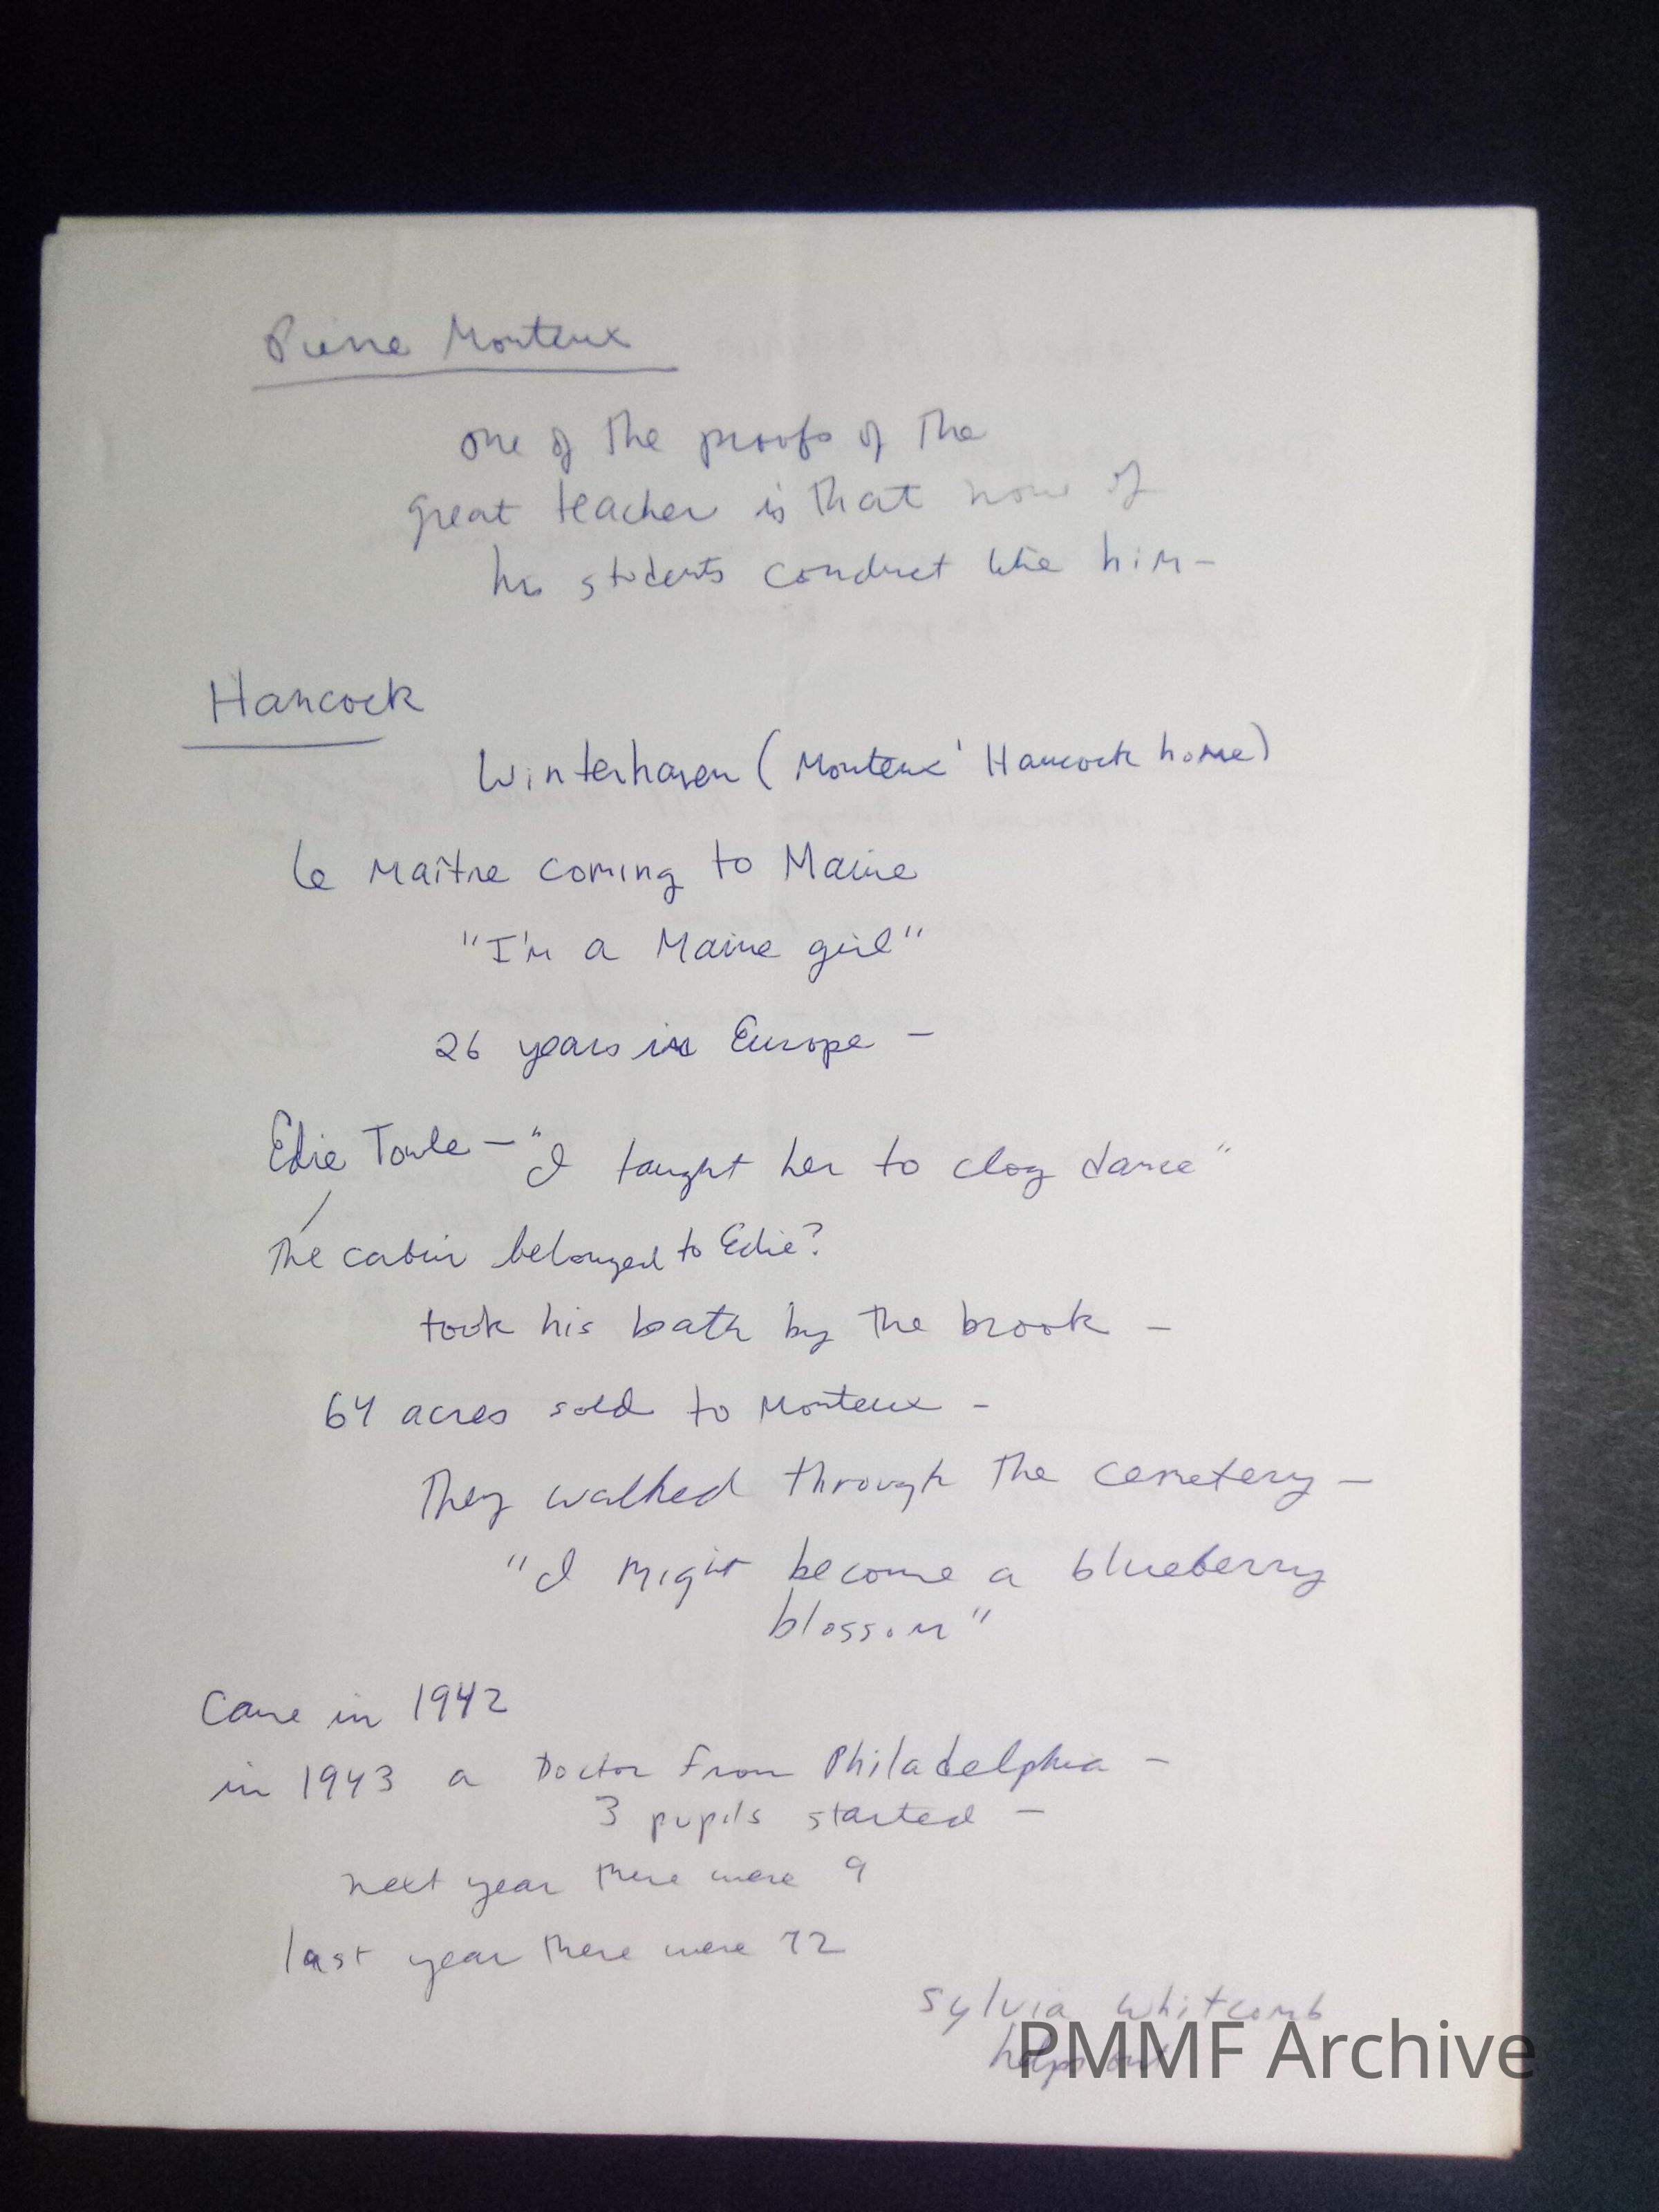 Pierre Monteux
one of the proofs of the
great teacher is that none of
his students conduct like him -
Hancock
Winterhaven (Monteux' Hancock home)
le Maître coming to Maine
"I'm a Maine girl"
26 years in Europe -
Edie Towle - "I taught her to clog dance"
The cabin belonged to Edie?
took his bath by the brook -
64 acres sold to Monteux -
They walked through the cemetery -
"I might become a blueberry
blossom"
Came in 1942
in 1943 a Doctor from Philadelphia -
3 pupils started -
next year there were 9
last year there were 72
Sylvia Whitcomb
helps out
PMMF Archive